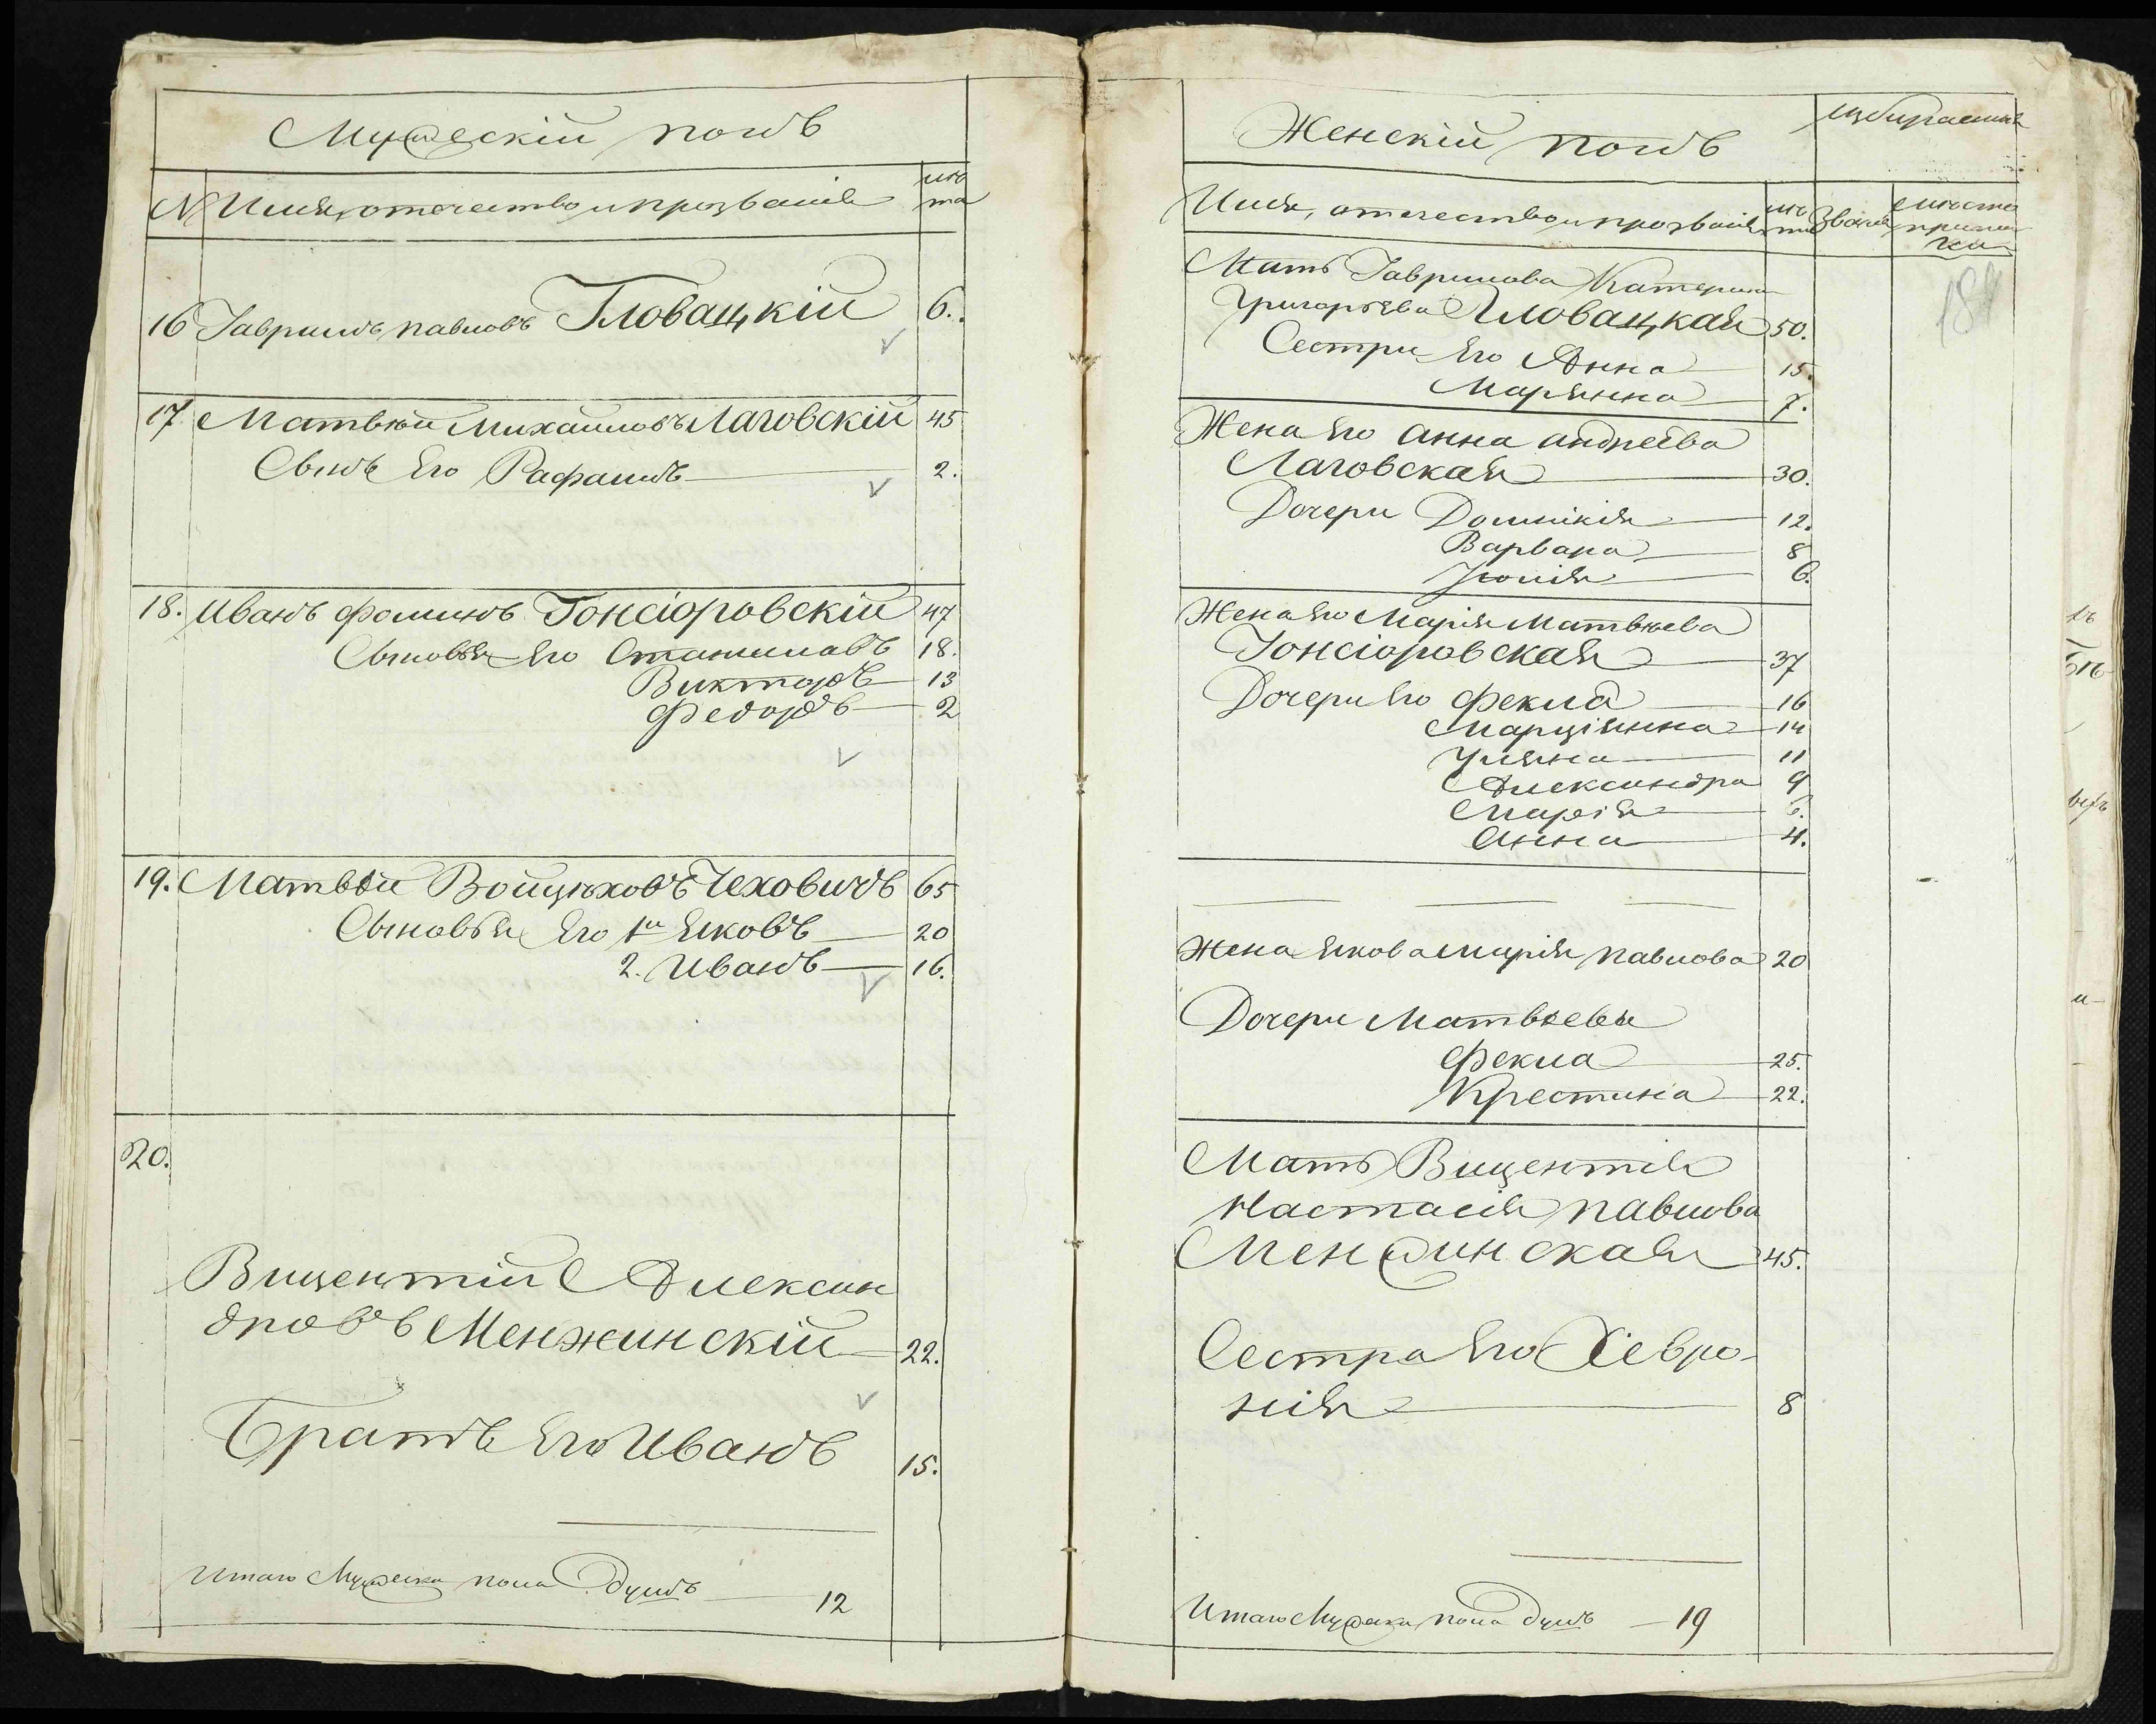 Мужескій полъ
№ Имя, отечество и прозваніе
лѣ
та
16 Гаврилъ павловъ Гловацкій 6.
17 Матвѣй Михаиловъ Лаговскій 45
Сынъ Его Рафаилъ 2.
18. Иванъ фоминъ Гонсіоровскій 47
Сыновья Его Станиславъ 18.
Викторъ 13
Федоръ 2
19. Матвѣй Войцѣховъ Чеховичъ 65
Сыновья Его 1й Яковъ 20
2. Иванъ 16.
20.
Вицентій Алексан
дровъ Менжинскій 22.
Братъ Его Иванъ 15.
Итаго Мужеска пола душъ 12
Женскій полъ
избираемыя
Имя, отечество и прозваніе
лѣ
та
Званія
Мать Гаврилова Катерина
Григорьева Гловацкая 50.
Сестри Его Анна 15.
Марянна 7.
Жена Его анна андреева
Лаговская 30.
Дочери Домникія 12.
Варвара 8
Юлія 6.
Жена Его Марія Матвѣева
Гонсіоровская 37
Дочери Его Фекла 16
Марціянна 14
Уляна 11
Александра 9
Марія 6.
Анна 4.
Жена Якова марія павлова 20
Дочери Матвѣевы
Фекла 25.
Крестина 22.
Мать Вицентія
Настасія павлова
Менжинская 45.
Сестра Его Хевро-
нія 8
Итаго Мужска пола душъ — 19